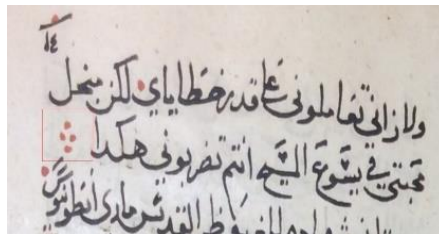 ١٤
تعاملوني على قدر خطاياي لكن منجل
محبتي في يسوع المسيح انتم تضربوني هكدا
القديس ماري انطونيوس